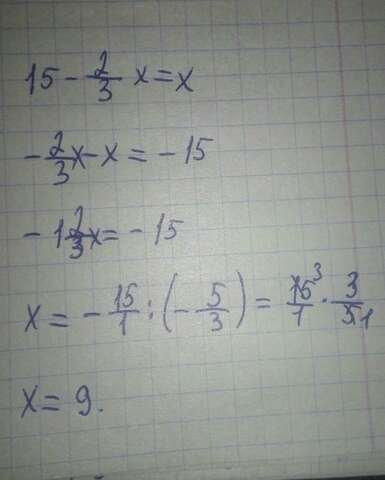 15 - 2/3 x = x
- 2/3 x - x = - 15
- 1 2/3 x = - 15
x = - 15/1 : (- 5/3) = 15³/1 · 3/5₁
x = 9.